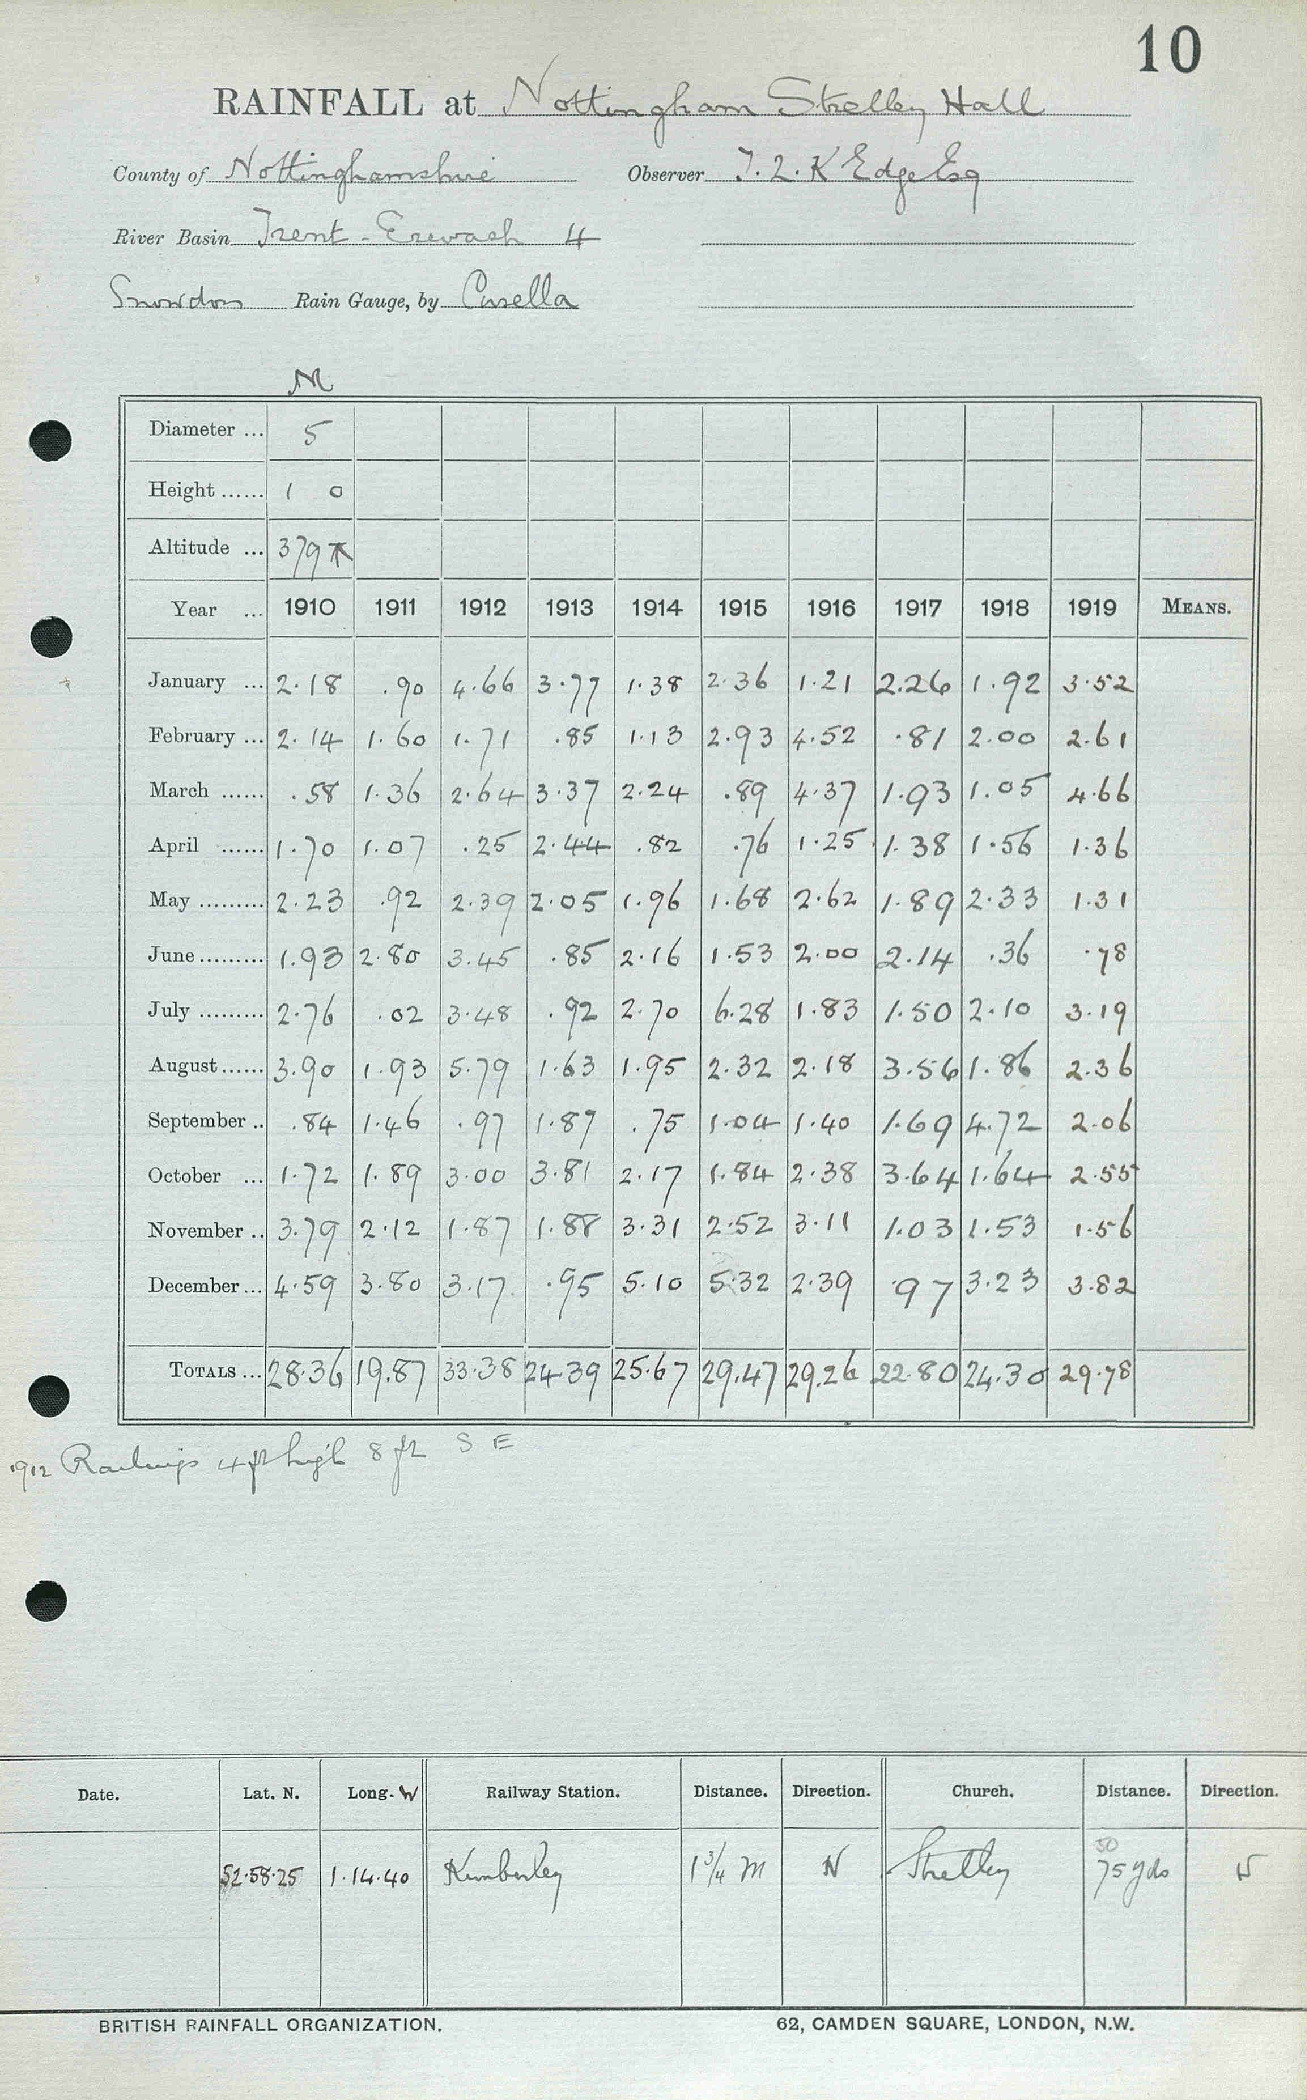 10
RAINFALL at Nottingham Strelley Hall
County of Nottinghamshire Observer J. L. K Edge Esq
River Basin Trent - Erewash 4
Snowdon Rain Gauge, by Casella
M
Diameter ... 5
Height ...... 1 0
Altitude ... 379
Year ... 1910 1911 1912 1913 1914 1915 1916 1917 1918 1919 MEANS.
January ... 2.18 .90 4.66 3.77 1.38 2.36 1.21 2.26 1.92 3.52
February ... 2.14 1.60 1.71 .85 1.13 2.93 4.52 .81 2.00 2.61
March ...... .58 1.36 2.64 3.37 2.24 .89 4.37 1.93 1.05 4.66
April ...... 1.70 1.07 .25 2.44 .82 .76 1.25 1.38 1.56 1.36
May ......... 2.23 .92 2.39 2.05 1.96 1.68 2.62 1.89 2.33 1.31
June ......... 1.93 2.80 3.45 .85 2.16 1.53 2.00 2.14 .36 .78
July ......... 2.76 .02 3.48 .92 2.70 6.28 1.83 1.50 2.10 3.19
August ...... 3.90 1.93 5.79 1.63 1.95 2.32 2.18 3.56 1.86 2.36
September .. .84 1.46 .97 1.87 .75 1.04 1.40 1.69 4.72 2.06
October ... 1.72 1.89 3.00 3.81 2.17 1.84 2.38 3.64 1.64 2.55
November .. 3.79 2.12 1.87 1.88 3.31 2.52 3.11 1.03 1.53 1.56
December ... 4.59 3.80 3.17 .95 5.10 5.32 2.39 .97 3.23 3.82
TOTALS ... 28.36 19.87 33.38 24.39 25.67 29.47 29.26 22.80 24.30 29.78
1912 Railings 4 ft high 8 ft S E
Date. Lat. N. Long. W Railway Station. Distance. Direction. Church. Distance. Direction.
50
52.58.25 1.14.40 Kimberley 1 3/4 M N Strelley 75 yds W
BRITISH RAINFALL ORGANIZATION. 62, CAMDEN SQUARE, LONDON, N.W.